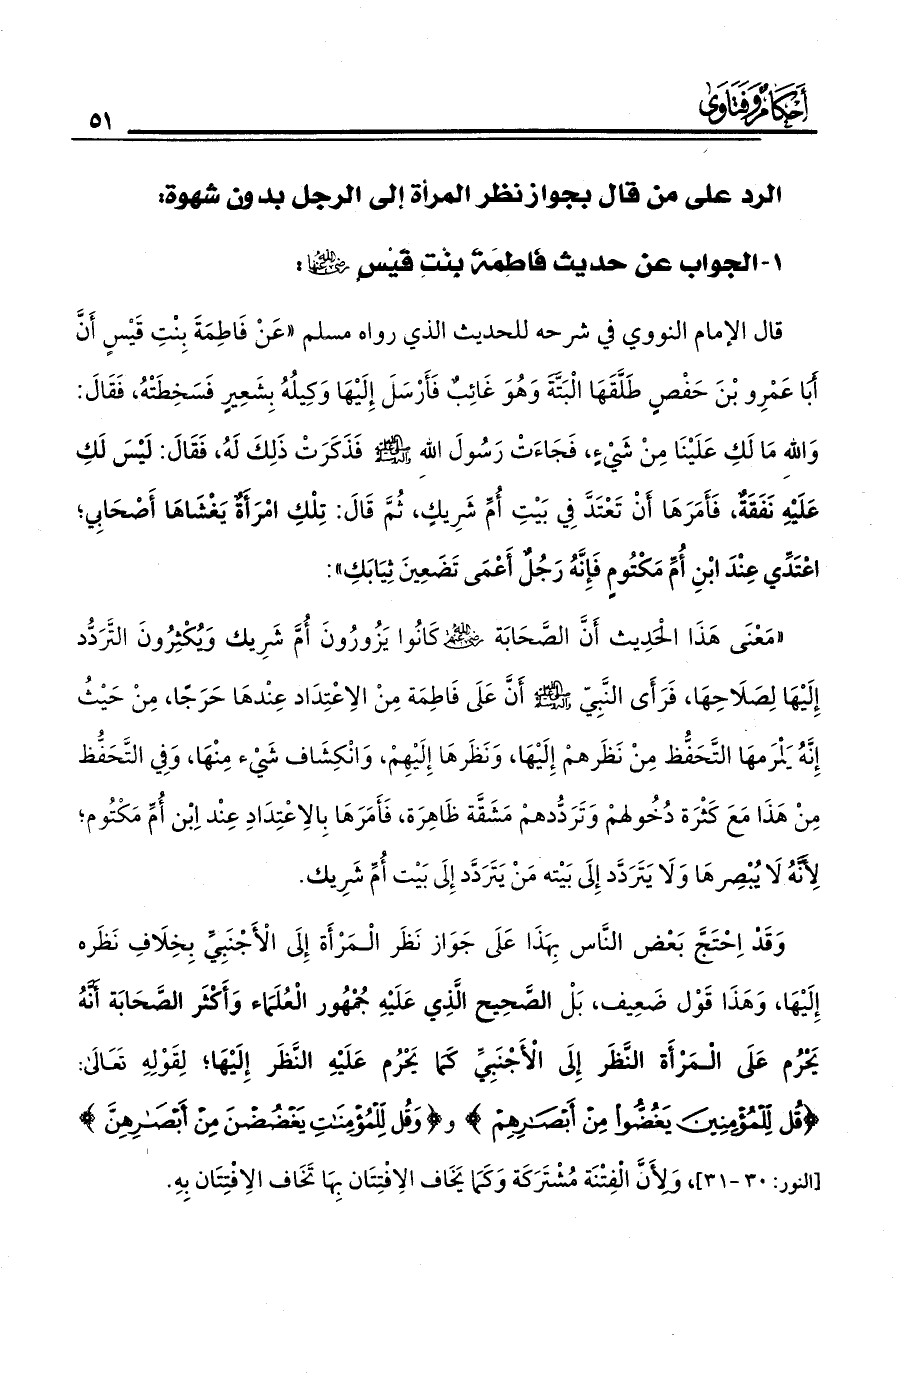 أحكام وفتاوى
٥١
الرد على من قال بجواز نظر المرأة إلى الرجل بدون شهوة:
١- الجواب عن حديث فاطِمَةَ بِنْتِ قَيْسٍ رضي الله عنها:
قال الإمام النووي في شرحه للحديث الذي رواه مسلم «عَنْ فَاطِمَةَ بِنْتِ قَيْسٍ أَنَّ
أَبَا عَمْرِو بْنَ حَفْصٍ طَلَّقَهَا الْبَتَّةَ وَهُوَ غَائِبٌ فَأَرْسَلَ إِلَيْهَا وَكِيلُهُ بِشَعِيرٍ فَسَخِطَتْهُ، فَقَالَ:
وَالله مَا لَكِ عَلَيْنَا مِنْ شَيْءٍ، فَجَاءَتْ رَسُولَ الله ﷺ فَذَكَرَتْ ذَلِكَ لَهُ، فَقَالَ: لَيْسَ لَكِ
عَلَيْهِ نَفَقَةٌ، فَأَمَرَهَا أَنْ تَعْتَدَّ فِي بَيْتِ أُمِّ شَرِيكٍ، ثُمَّ قَالَ: تِلْكِ امْرَأَةٌ يَغْشَاهَا أَصْحَابِي؛
اعْتَدِّي عِنْدَ ابْنِ أُمِّ مَكْتُومٍ فَإِنَّهُ رَجُلٌ أَعْمَى تَضَعِينَ ثِيَابَكِ»:
«مَعْنَى هَذَا الْحَدِيث أَنَّ الصَّحَابَة رضي الله عنهم كَانُوا يَزُورُونَ أُمَّ شَرِيك وَيُكْثِرُونَ التَّرَدُّد
إِلَيْهَا لِصَلَاحِهَا، فَرَأَى النَّبِيّ ﷺ أَنَّ عَلَى فَاطِمَة مِنْ الِاعْتِدَاد عِنْدهَا حَرَجًا، مِنْ حَيْثُ
إِنَّهُ يَلْزَمهَا التَّحَفُّظ مِنْ نَظَرهمْ إِلَيْهَا، وَنَظَرهَا إِلَيْهِمْ، وَانْكِشَاف شَيْء مِنْهَا، وَفِي التَّحَفُّظ
مِنْ هَذَا مَعَ كَثْرَة دُخُولهمْ وَتَرَدُّدهمْ مَشَقَّة ظَاهِرَة، فَأَمَرَهَا بِالِاعْتِدَادِ عِنْد اِبْن أُمّ مَكْتُوم؛
لِأَنَّهُ لَا يُبْصِرهَا وَلَا يَتَرَدَّد إِلَى بَيْته مَنْ يَتَرَدَّد إِلَى بَيْت أُمّ شَرِيك.
وَقَدْ اِحْتَجَّ بَعْض النَّاس بِهَذَا عَلَى جَوَاز نَظَر الْـمَرْأَة إِلَى الْأَجْنَبِيِّ بِخِلَافِ نَظَره
إِلَيْهَا، وَهَذَا قَوْل ضَعِيف، بَلْ الصَّحِيح الَّذِي عَلَيْهِ جُمْهُور الْعُلَمَاء وَأَكْثَر الصَّحَابَة أَنَّهُ
يَحْرُم عَلَى الْـمَرْأَة النَّظَر إِلَى الْأَجْنَبِيِّ كَمَا يَحْرُم عَلَيْهِ النَّظَر إِلَيْهَا؛ لِقَوْلِهِ تَعَالَى:
﴿قُل لِّلْمُؤْمِنِينَ يَغُضُّوا۟ مِنْ أَبْصَـٰرِهِمْ﴾ و﴿وَقُل لِّلْمُؤْمِنَـٰتِ يَغْضُضْنَ مِنْ أَبْصَـٰرِهِنَّ﴾
[النور: ٣٠-٣١]، وَلِأَنَّ الْفِتْنَة مُشْتَرَكَة وَكَمَا يَخَاف الِافْتِتَان بِهَا تَخَاف الِافْتِتَان بِهِ.